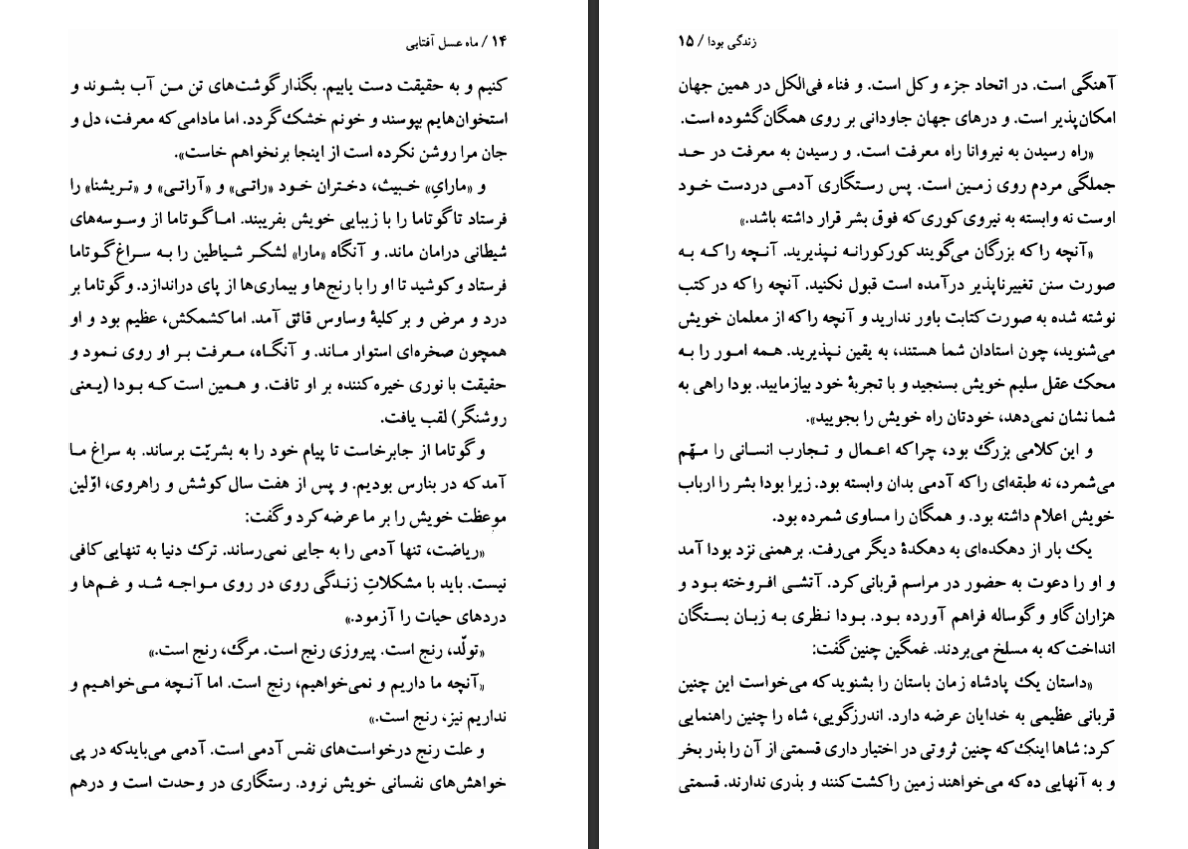 ۱۴ / ماه عسل آفتابی
کنیم و به حقیقت دست یابیم. بگذار گوشت‌های تن من آب بشوند و
استخوان‌هایم بپوسند و خونم خشک گردد. اما مادامی که معرفت، دل و
جان مرا روشن نکرده است از اینجا برنخواهم خاست».
و «مارایِ» خبیث، دختران خود «راتی» و «آراتی» و «تریشنا» را
فرستاد تا گوتاما را با زیبایی خویش بفریبند. اما گوتاما از وسوسه‌های
شیطانی درامان ماند. و آنگاه «مارا» لشکر شیاطین را به سراغ گوتاما
فرستاد و کوشید تا او را با رنج‌ها و بیماری‌ها از پای دراندازد. و گوتاما بر
درد و مرض و بر کلیهٔ وساوس قائق آمد. اما کشمکش، عظیم بود و او
همچون صخره‌ای استوار ماند. و آنگاه، معرفت بر او روی نمود و
حقیقت با نوری خیره کننده بر او تافت. و همین است که بودا (یعنی
روشنگر) لقب یافت.
و گوتاما از جابرخاست تا پیام خود را به بشریّت برساند. به سراغ ما
آمد که در بنارس بودیم. و پس از هفت سال کوشش و راهروی، اوّلین
موعظت خویش را بر ما عرضه کرد و گفت:
«ریاضت، تنها آدمی را به جایی نمی‌رساند. ترک دنیا به تنهایی کافی
نیست. باید با مشکلاتِ زندگی روی در روی مواجه شد و غم‌ها و
دردهای حیات را آزمود.»
«تولّد، رنج است. پیروزی رنج است. مرگ، رنج است.»
«آنچه ما داریم و نمی‌خواهیم، رنج است. اما آنچه می‌خواهیم و
نداریم نیز، رنج است.»
و علت رنج درخواست‌های نفس آدمی است. آدمی می‌باید که در پی
خواهش‌های نفسانی خویش نرود. رستگاری در وحدت است و درهم
زندگی بودا / ۱۵
آهنگی است. در اتحاد جزء و کل است. و فناء فی‌الکل در همین جهان
امکان‌پذیر است. و درهای جهان جاودانی بر روی همگان گشوده است.
«راه رسیدن به نیروانا راه معرفت است. و رسیدن به معرفت در حد
جملگی مردم روی زمین است. پس رستگاری آدمی دردست خود
اوست نه وابسته به نیروی کوری که فوق بشر قرار داشته باشد.»
«آنچه را که بزرگان می‌گویند کورکورانه نپذیرید. آنچه را که به
صورت سنن تغییرناپذیر درآمده است قبول نکنید. آنچه را که در کتب
نوشته شده به صورت کتابت باور ندارید و آنچه را که از معلمان خویش
می‌شنوید، چون استادان شما هستند، به یقین نپذیرید. همه امور را به
محک عقل سلیم خویش بسنجید و با تجربهٔ خود بیازمایید. بودا راهی به
شما نشان نمی‌دهد، خودتان راه خویش را بجویید».
و این کلامی بزرگ بود، چرا که اعمال و تجارب انسانی را مهّم
می‌شمرد، نه طبقه‌ای را که آدمی بدان وابسته بود. زیرا بودا بشر را ارباب
خویش اعلام داشته بود. و همگان را مساوی شمرده بود.
یک بار از دهکده‌ای به دهکدهٔ دیگر می‌رفت. برهمنی نزد بودا آمد
و او را دعوت به حضور در مراسم قربانی کرد. آتشی افروخته بود و
هزاران گاو و گوساله فراهم آورده بود. بودا نظری به زبان بستگان
انداخت که به مسلخ می‌بردند. غمگین چنین گفت:
«داستان یک پادشاه زمان باستان را بشنوید که می‌خواست این چنین
قربانی عظیمی به خدایان عرضه دارد. اندرزگویی، شاه را چنین راهنمایی
کرد: شاها اینک که چنین ثروتی در اختیار داری قسمتی از آن را بذر بخر
و به آنهایی ده که می‌خواهند زمین را کشت کنند و بذری ندارند. قسمتی